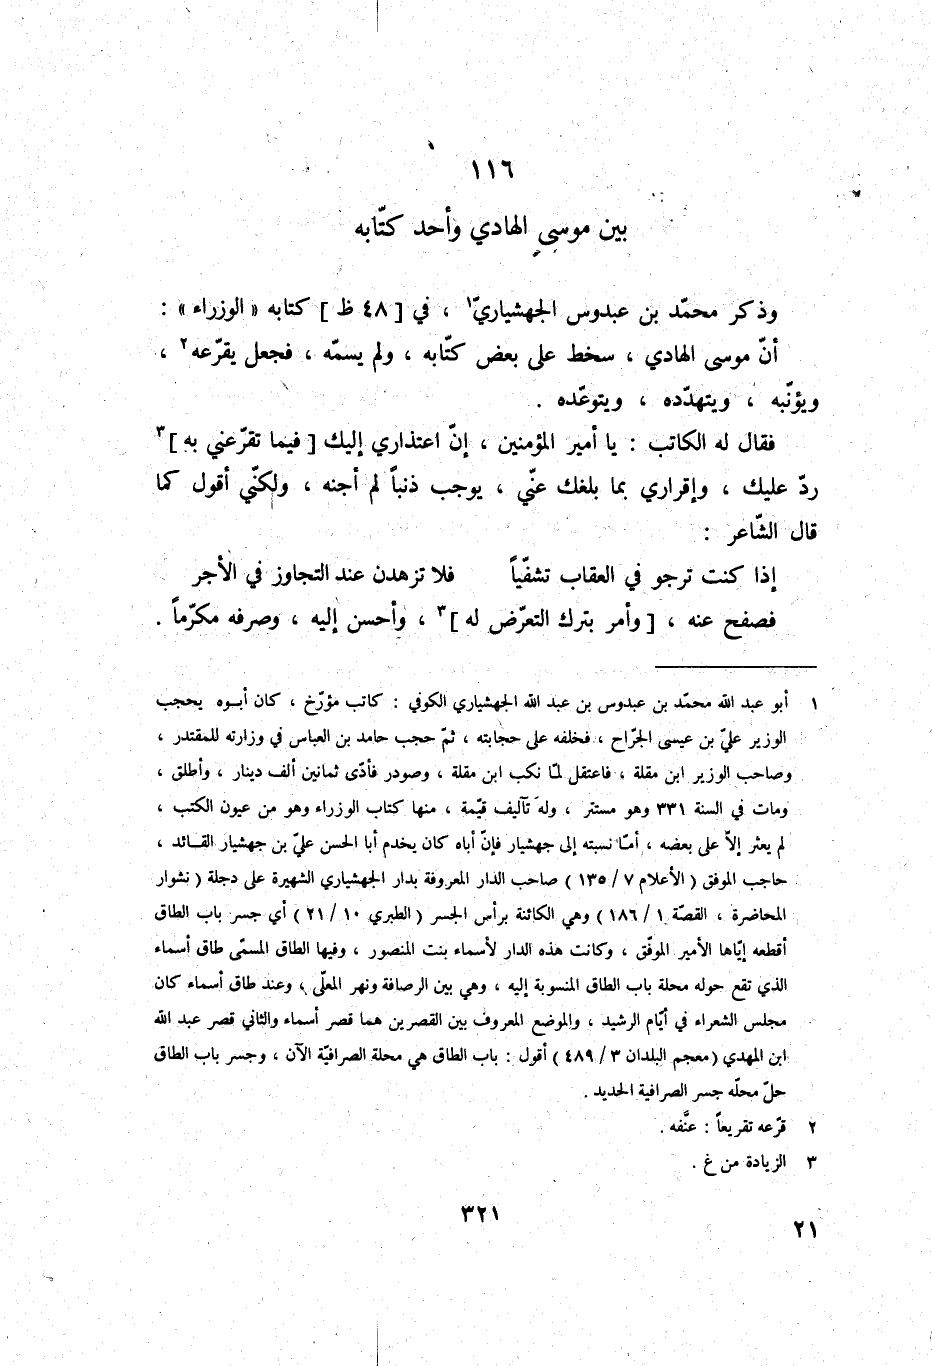 ١١٦
بين موسى الهادي وأحد كتّابه
وذكر محمّد بن عبدوس الجهشياريّ١ ، في [ ٤٨ ظ ] كتابه « الوزراء » :
أنّ موسى الهادي ، سخط على بعض كتّابه ، ولم يسمّه ، فجعل يقرّعه٢ ،
ويؤنّبه ، ويتهدّده ، ويتوعّده .
فقال له الكاتب : يا أمير المؤمنين ، إنّ اعتذاري إليك [ فيما تقرّعني به ]٣
ردّ عليك ، وإقراري بما بلغك عنّي ، يوجب ذنباً لم أجنه ، ولكنّي أقول كما
قال الشّاعر :
إذا كنت ترجو في العقاب تشفّياً فلا تزهدن عند التجاوز في الأجر
فصفح عنه ، [ وأمر بترك التعرّض له ]٣ ، وأحسن إليه ، وصرفه مكرّماً .
١ أبو عبد الله محمّد بن عبدوس بن عبد الله الجهشياري الكوفي : كاتب مؤرّخ ، كان أبوه يحجب
الوزير عليّ بن عيسى الجرّاح ، فخلفه على حجابته ، ثمّ حجب حامد بن العباس في وزارته للمقتدر ،
وصاحب الوزير ابن مقلة ، فاعتقل لمّا نكب ابن مقلة ، وصودر فأدّى ثمانين ألف دينار ، وأطلق ،
ومات في السنة ٣٣١ وهو مستتر ، وله تآليف قيّمة ، منها كتاب الوزراء وهو من عيون الكتب ،
لم يعثر إلاّ على بعضه ، أمّا نسبته إلى جهشيار فإنّ أباه كان يخدم أبا الحسن عليّ بن جهشيار القائد ،
حاجب الموفق ( الأعلام ٧ / ١٣٥ ) صاحب الدار المعروفة بدار الجهشياري الشهيرة على دجلة ( نشوار
المحاضرة ، القصّة ١ / ١٨٦ ) وهي الكائنة برأس الجسر ( الطبري ١٠ / ٢١ ) أي جسر باب الطاق
أقطعه إيّاها الأمير الموفّق ، وكانت هذه الدار لأسماء بنت المنصور ، وفيها الطاق المسمّى طاق أسماء
الذي تقع حوله محلة باب الطاق المنسوبة إليه ، وهي بين الرصافة ونهر المعلّى ، وعند طاق أسماء كان
مجلس الشعراء في أيّام الرشيد ، والموضع المعروف بين القصرين هما قصر أسماء والثاني قصر عبد الله
ابن المهدي ( معجم البلدان ٣ / ٤٨٩ ) أقول : باب الطاق هي محلة الصرافيّة الآن ، وجسر باب الطاق
حلّ محلّه جسر الصرافية الحديد .
٢ قرّعه تقريعاً : عنَّفه .
٣ الزيادة من غ .
٣٢١
٢١